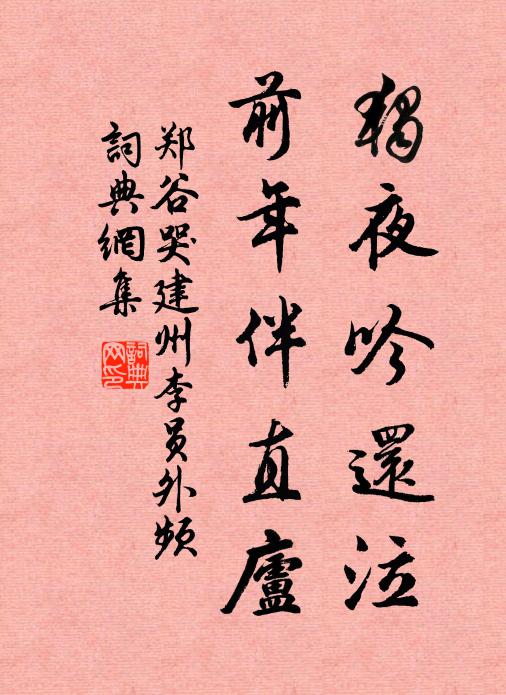 獨夜吟還泣
前年伴直廬
郑谷哭建州李員外頻
詞典網集
詞典
网印